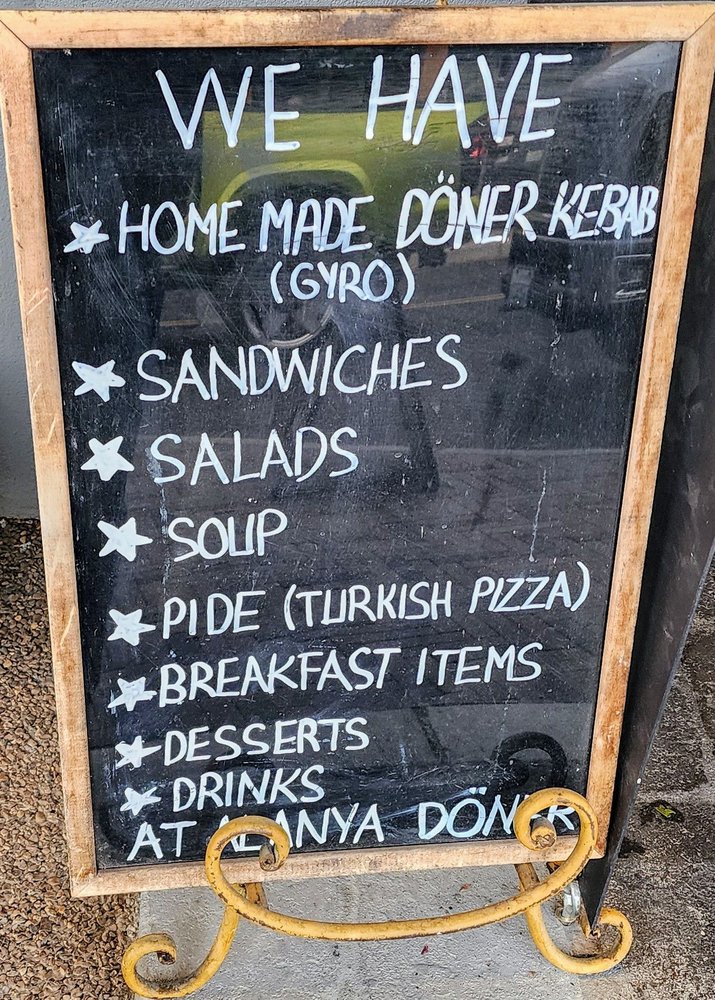 WE HAVE
HOME MADE DÖNER KEBAB
(GYRO)
SANDWICHES
SALADS
SOUP
PIDE (TURKISH PIZZA)
BREAKFAST ITEMS
DESSERTS
DRINKS
AT ALANYA DÖNER